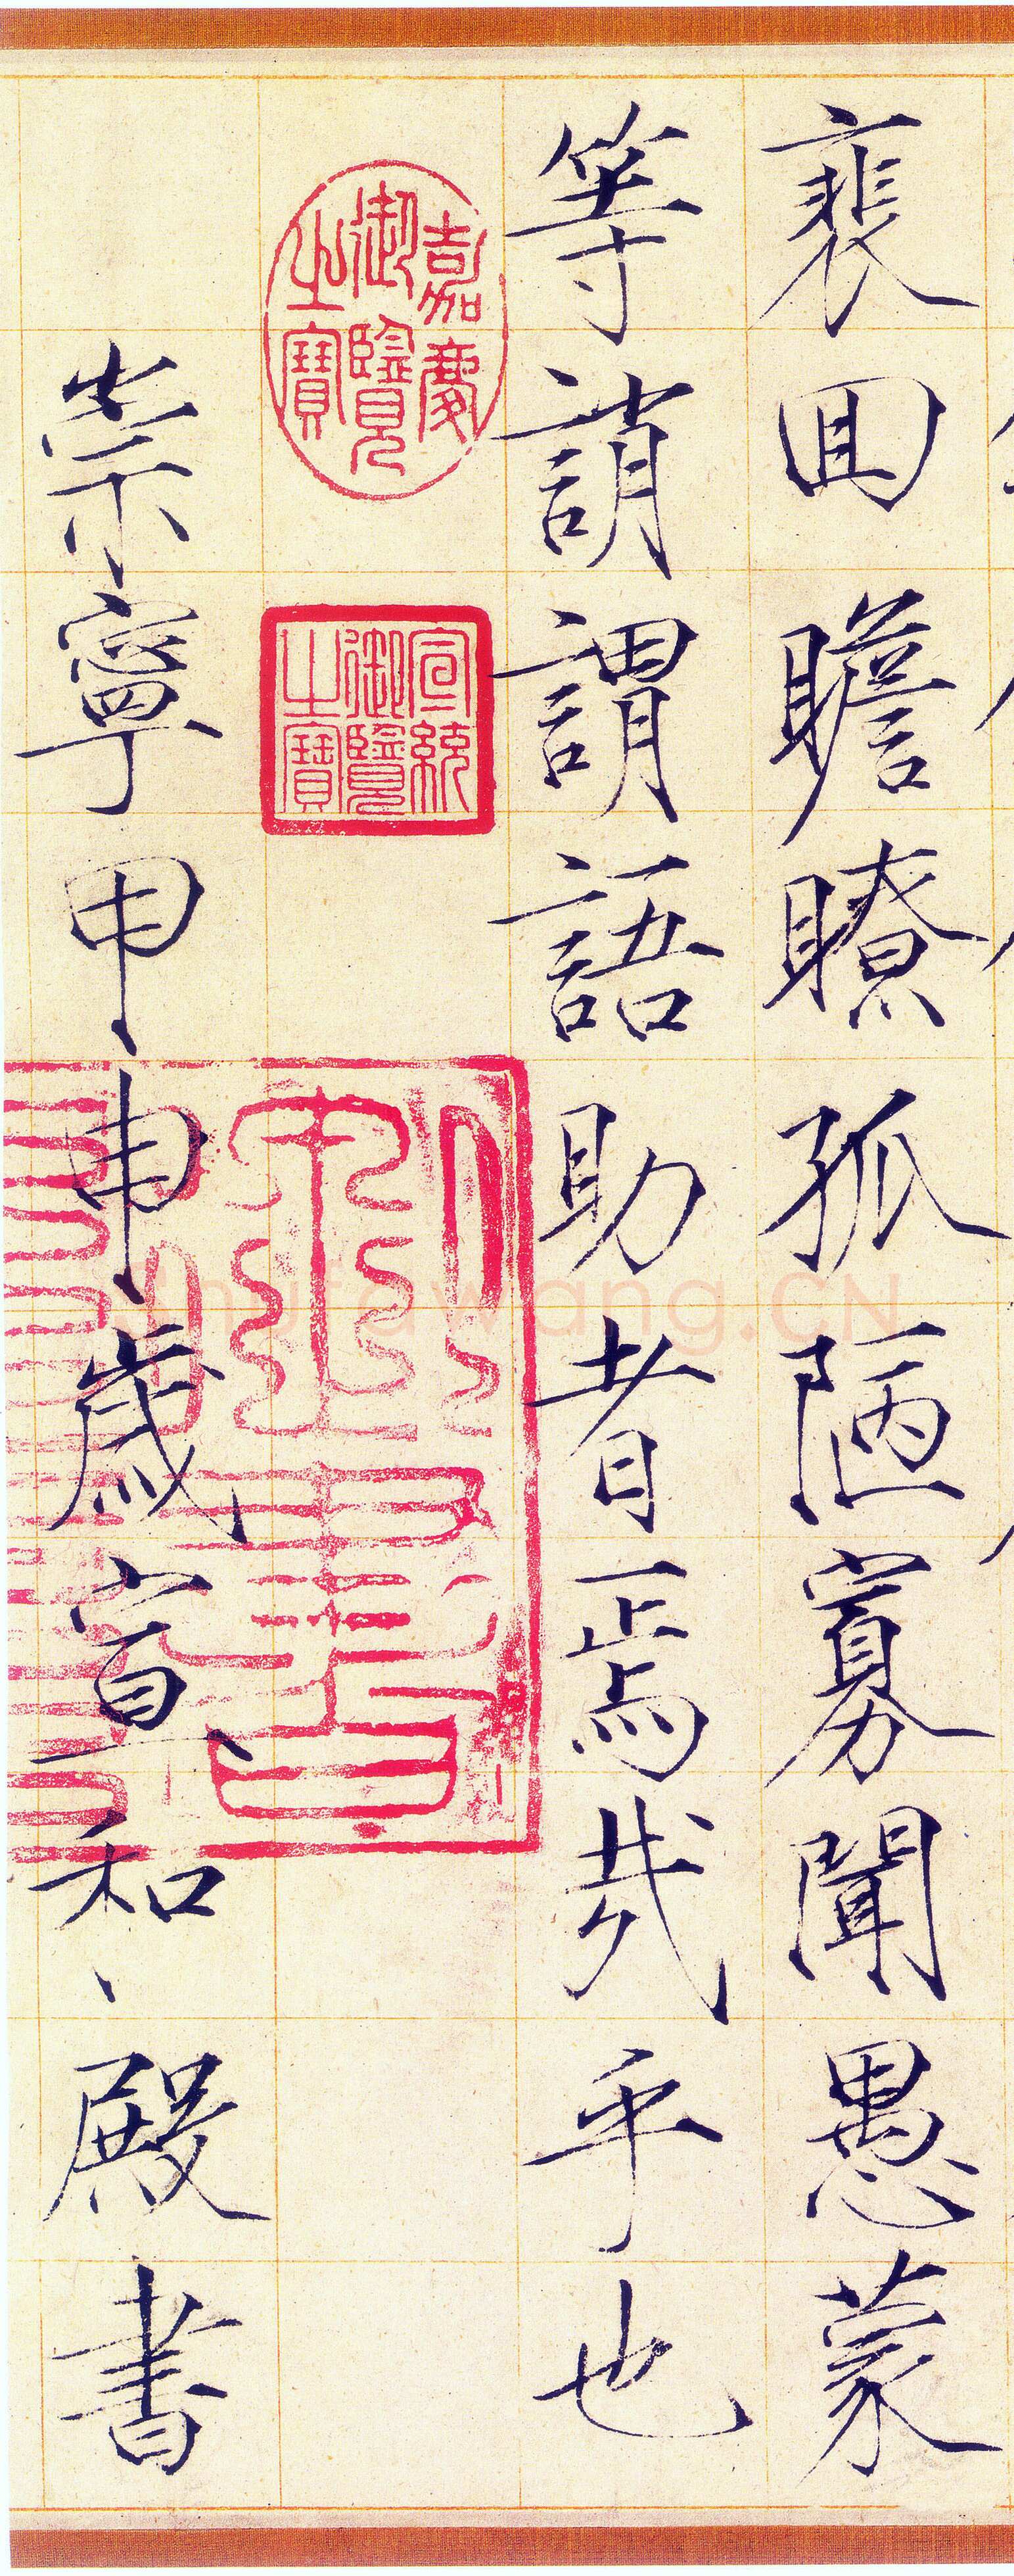 裵回瞻瞭孤陋寡聞愚蒙
等誚謂語助者焉哉乎也
嘉慶御覽之寶
宣統御覽之寶
崇寧甲申歲宣和殿書
shufawang.CN